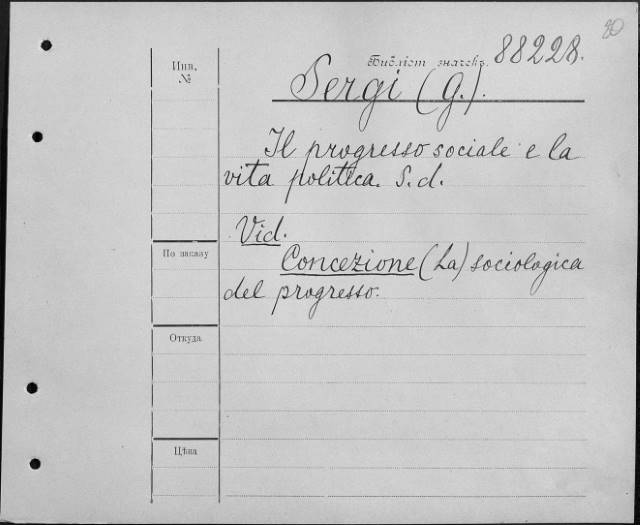 80
Инв.
№
Библіот значекъ. 88228.
Sergi (G.).
Il progresso sociale e la
vita politica. S. d.
Vid.
Concezione (La) sociologica
del progresso.
По заказу
Откуда
Цѣна